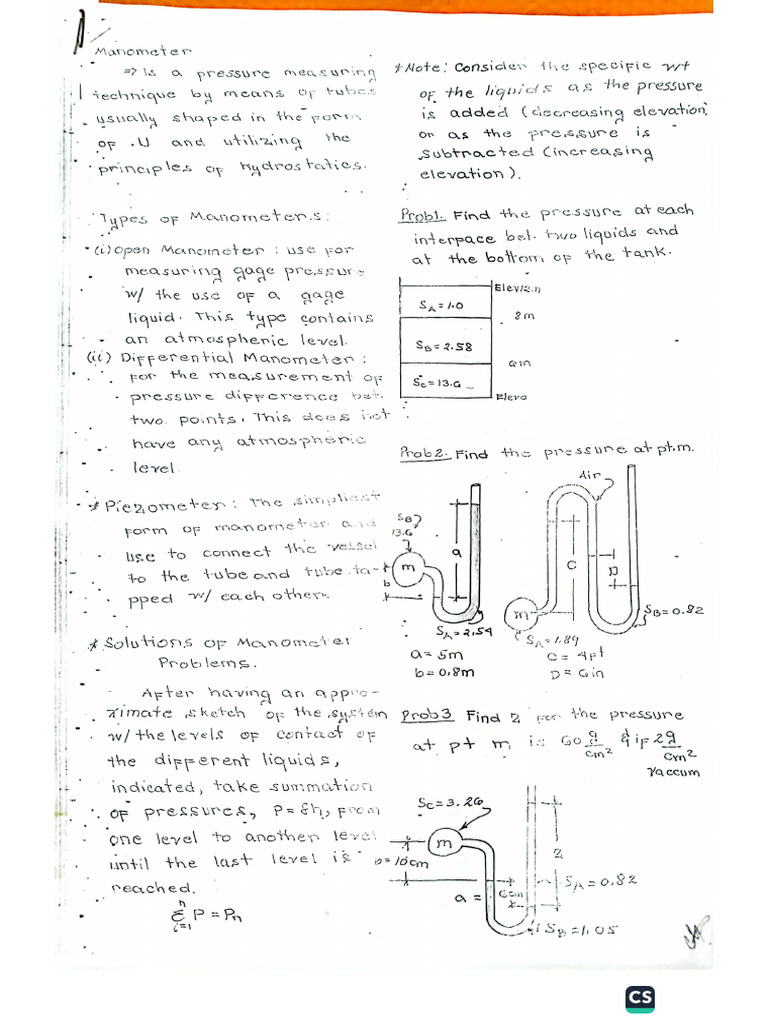 Manometer
=> Is a pressure measuring
technique by means of tubes
usually shaped in the form
of U and utilizing the
principles of hydrostatics.
Types of Manometers:
(i) Open Manometer : use for
measuring gage pressure
w/ the use of a gage
liquid. This type contains
an atmospheric level.
(ii) Differential Manometer :
for the measurement of
pressure difference bet.
two points. This does not
have any atmospheric
level.
* Piezometer : The simpliest
form of manometer and
use to connect the vessel
to the tube and tube ta-
pped w/ each other.
* Solutions of Manometer
Problems.
After having an appro-
ximate sketch of the system
w/ the levels of contact of
the different liquids,
indicated, take summation
of pressures, P = δh, from
one level to another level
until the last level is
reached.
n
Σ P = Pn
i=1
* Note: Consider the specific wt
of the liquids as the pressure
is added (decreasing elevation)
or as the pressure is
subtracted (increasing
elevation).
Prob1. Find the pressure at each
interpace bet. two liquids and
at the bottom of the tank.
SA = 1.0
8m
SB = 2.58
6m
SC = 13.6
Elev 0
Prob2. Find the pressure at pt. m.
Air
SB
13.6
m
a
b
SA = 2.54
a = 5m
b = 0.8m
C
D
m
SB = 0.82
SA = 1.89
C = 4ft
D = 6in
Prob3 Find Z for the pressure
at pt m is 60 g/cm² & if 2 g/cm²
vaccum
SC = 3.26
m
b = 10cm
Z
6cm
a =
SA = 0.82
SB = 1.05
CS